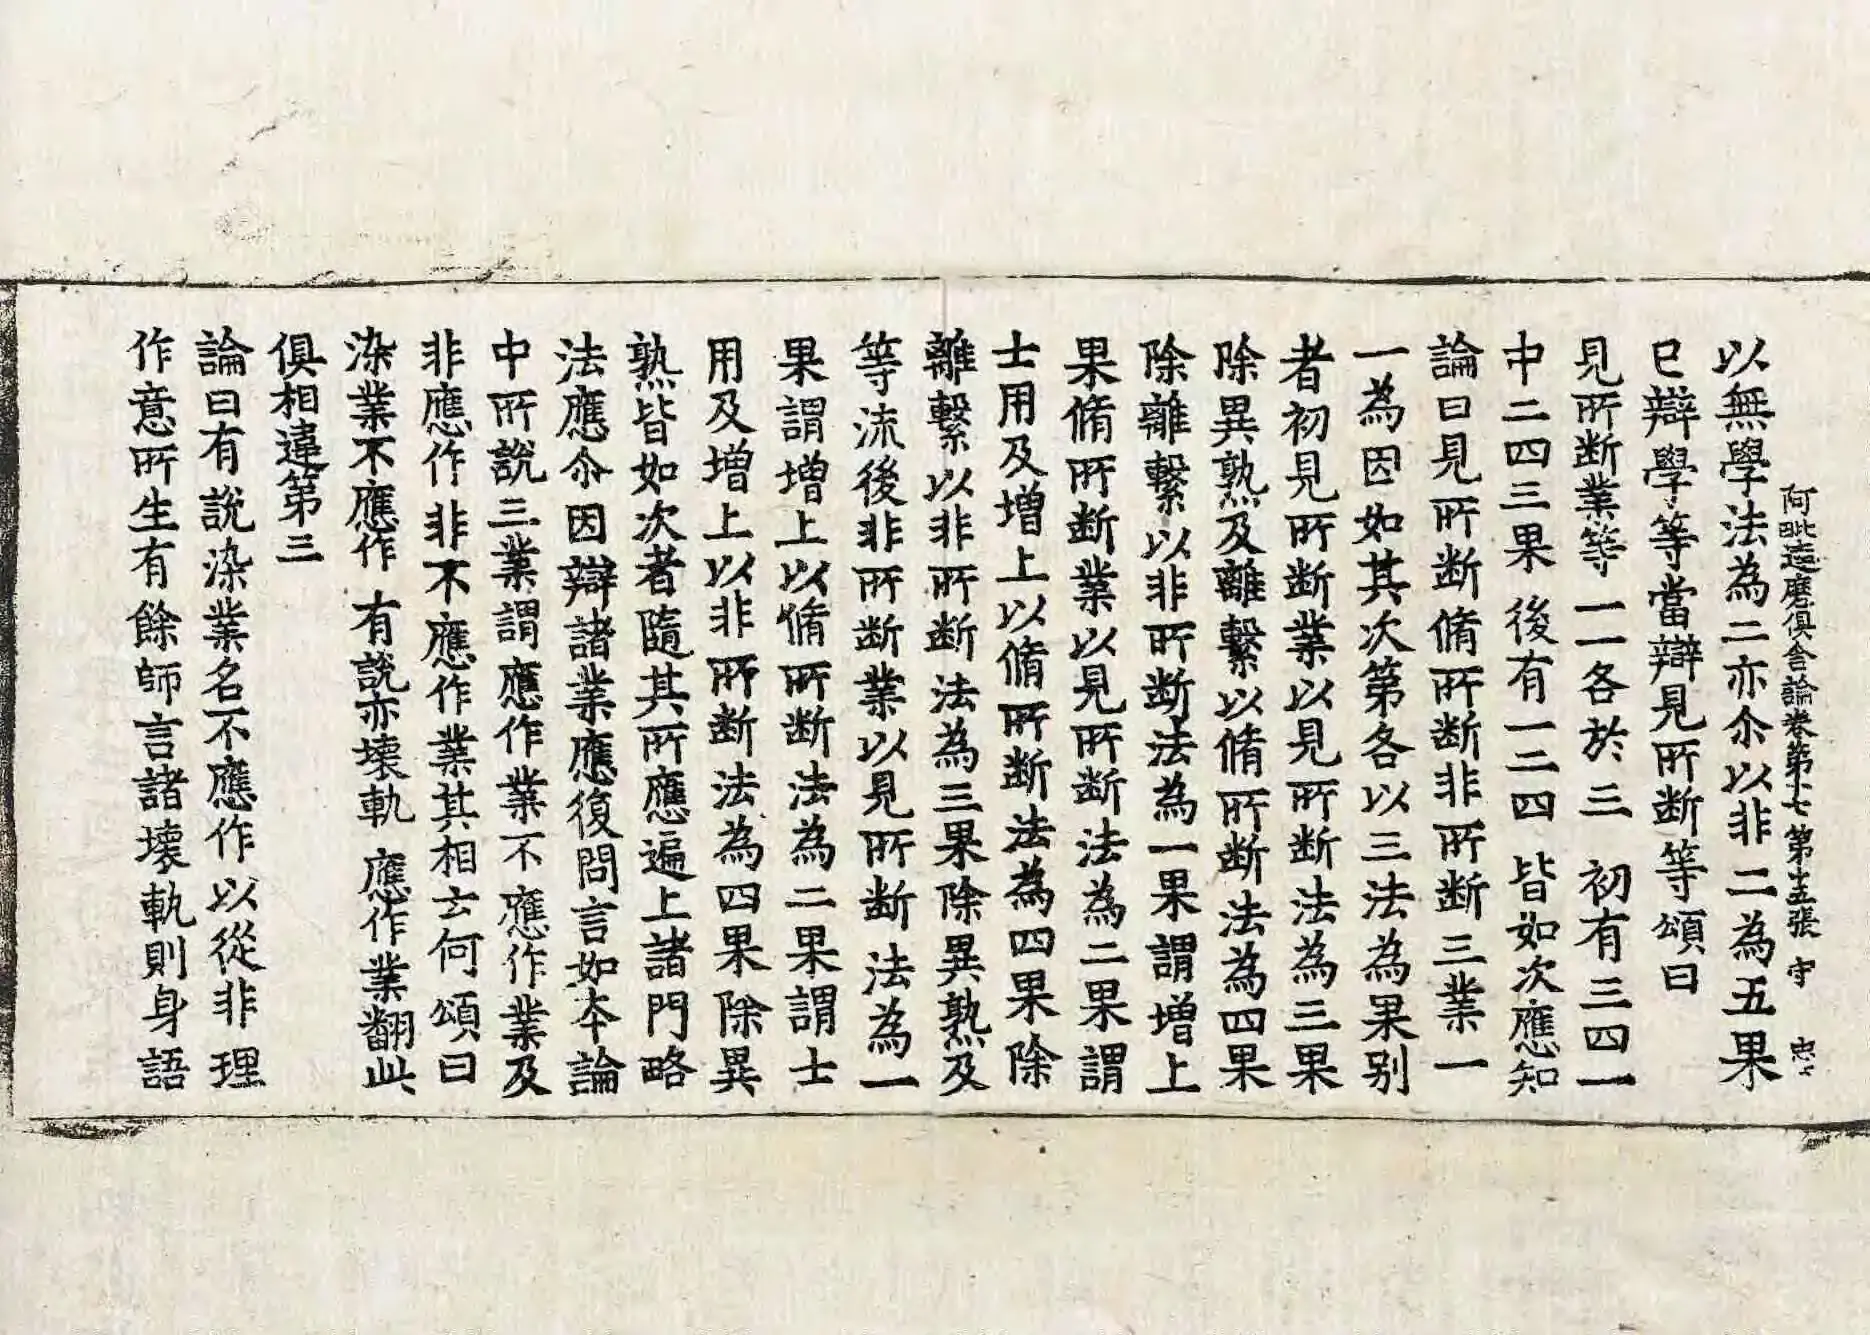 阿毗達磨俱舍論卷第十七 第十五張 守 忠〻
以無學法為二亦尒以非二為五果
已辯學等當辯見所断等頌曰
見所断業等 一一各於三 初有三四一
中二四三果 後有一二四 皆如次應知
論曰見所断脩所断非所断三業一
一為因如其次第各以三法為果别
者初見所断業以見所断法為三果
除異熟及離繫以脩所断法為四果
除離繫以非所断法為一果謂增上
果脩所断業以見所断法為二果謂
士用及增上以脩所断法為四果除
離繫以非所断法為三果除異熟及
等流後非所断業以見所断法為一
果謂增上以脩所断法為二果謂士
用及增上以非所断法為四果除異
熟皆如次者隨其所應遍上諸門略
法應尒因辯諸業應復問言如本論
中所說三業謂應作業不應作業及
非應作非不應作業其相云何頌曰
染業不應作 有說亦壞軌 應作業翻此
俱相違第三
論曰有說染業名不應作以從非理
作意所生有餘師言諸壞軌則身語